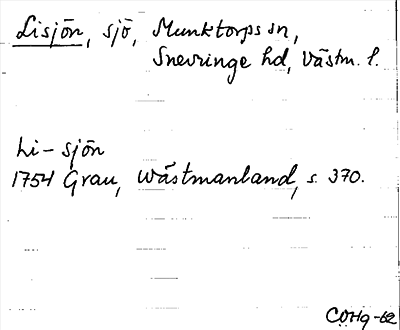 Lisjön, sjö, Munktorps sn,
Snevringe hd, Västm. l.
Li-sjön
1754 Grau, Wästmanland, s. 370.
COHg-62